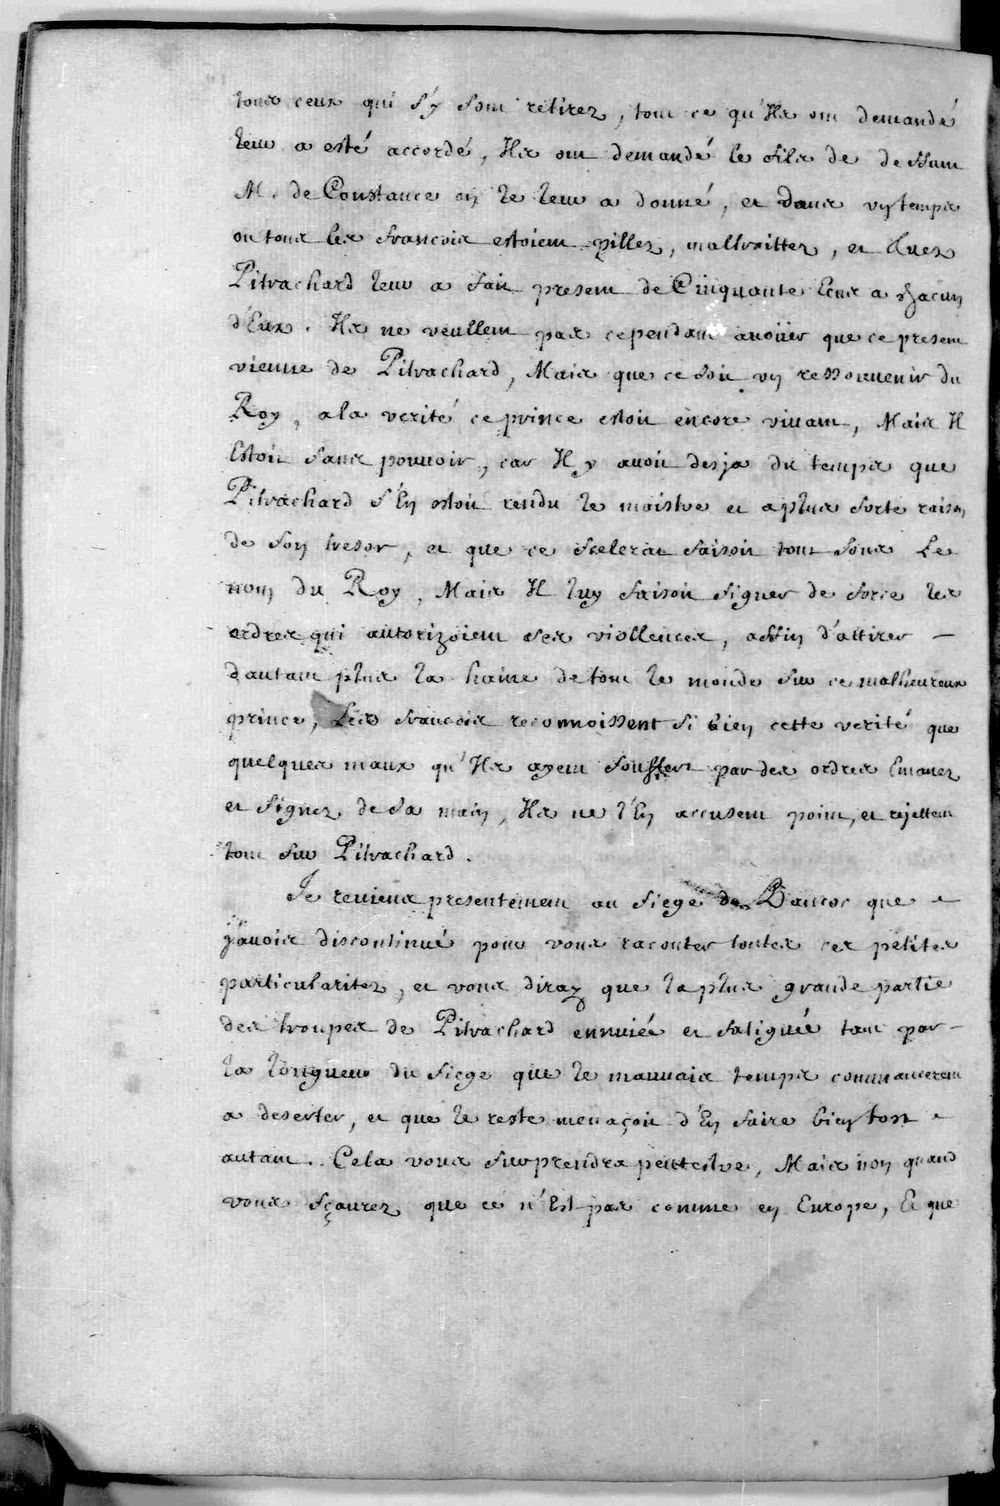 tous ceux qui s'y sont retirez, tout ce qu'Ils ont demandé
leur a esté accordé, Ils ont demandé le fils de deffunt
M. de Constance on le leur a donné, et dans un temps
ou tous les francois estoient pillez, maltraittez, et tuez
Pitrachard leur a fait present de Cinquante Ecus a chacun
d'Eux. Ils ne veullent pas cependant avoüer que ce present
vienne de Pitrachard, Mais que ce soit un ressouvenir du
Roy, a la verité ce prince estoit encore vivant, Mais Il
Estoit sans pouvoir, car Il y avoit desja du temps que
Pitrachard s'En estoit rendu le maistre et a plus forte raison
de son tresor, et que ce scelerat faisoit tout sous Le
nom du Roy, Mais Il luy faisoit signer de force les
ordres qui autorizoient ses viollences, affin d'attirer –
dautant plus la haine de tout le monde sur ce malheureux
prince, Les francois reconnoissent si bien cette verité que
quelques maux qu'Ils ayent souffert par des ordres Emanez
et signez de sa main, Ils ne l'En accusent point, et rejettent
tout sur Pitrachard.
Je reviens presentement au siege de Bancoc que –
j'avois discontinué pour vous raconter toutes ces petites
particularitez, et vous diray que la plus grande partie
des troupes de Pitrachard ennuiée et fatiguée tant par –
la longueur du siege que le mauvais temps commancerent
a deserter, et que le reste menaçoit d'En faire bien tost –
autant. Cela vous surprendra peutestre, Mais non quand
vous sçaurez que ce n'Est pas comme en Europe, Et que